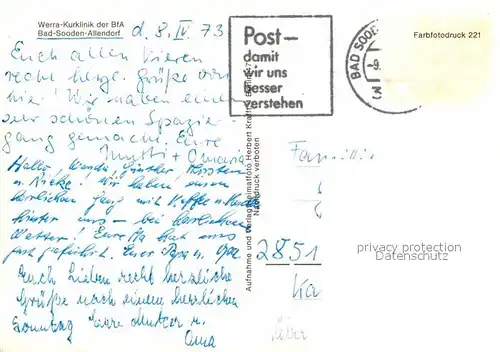 Werra-Kurklinik der BfA
Bad-Sooden-Allendorf
d. 8. IV. 73
Euch allen lieben
recht herzl. Grüße von
hier! Wir haben einen
sehr schönen Spazier-
gang gemacht. Eure
Mutti + Omaria
Hallo, Wanda, Günther, Thorsten
u. Nicke! Wir haben einen
herrlichen Gang mit Kaffee u.
hinter uns – bei herrlichem
Wetter! Eure Ma hat uns
fast geführt. Euer Papa u. Opa
Euch Lieben recht herzliche
Grüße nach einem herrlichen
Sonntag Eure Mutter u.
Oma
Post –
damit
wir uns
besser
verstehen
BAD SOODE
-9.
3
Farbfotodruck 221
Aufnahme und Verlag Heimatfoto Herbert
Nachdruck verboten
Familie
2851
Ka
privacy protection
Datenschutz